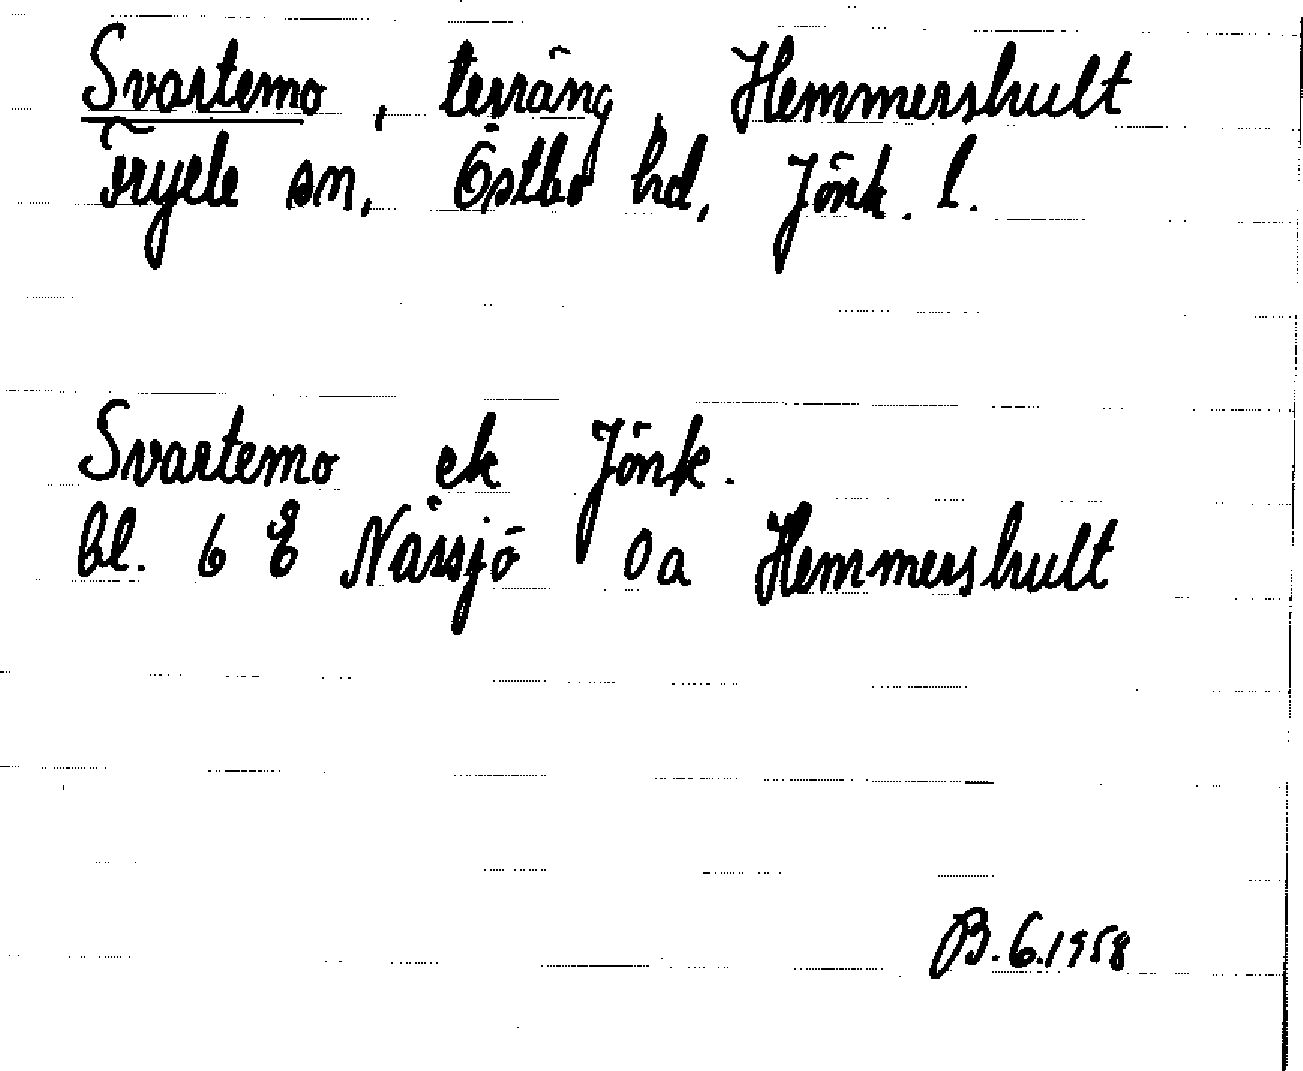 Svartemo, terräng, Hemmershult
Tryele sn, Östbo hd, Jönk. l.
Svartemo ek Jönk.
bl. 6 E Nässjö Oa Hemmershult
B.6.1958